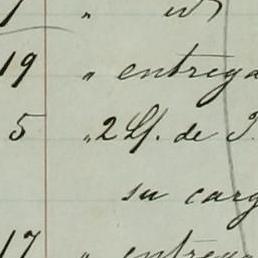 " id
19 " entrega
5 " 2 Lf. de 3.
su carg
17 " entrega